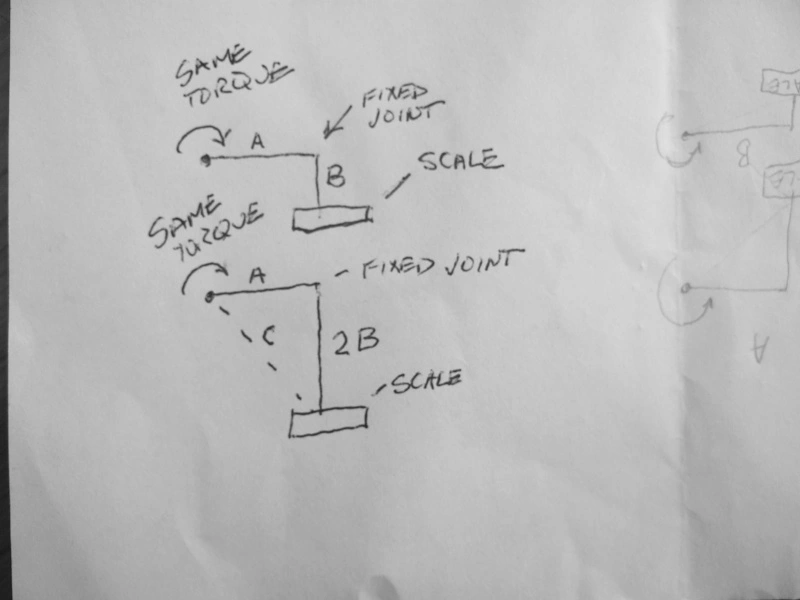 SAME
TORQUE
FIXED
JOINT
A
B
SCALE
SAME
TORQUE
A
FIXED JOINT
C
2B
SCALE
B
A